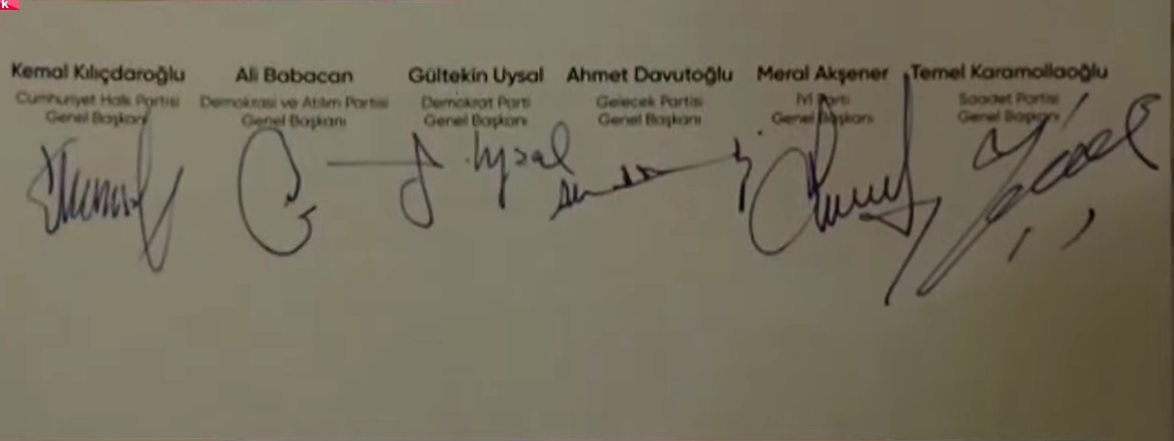 k
Kemal Kılıçdaroğlu Ali Babacan Gültekin Uysal Ahmet Davutoğlu Meral Akşener Temel Karamollaoğlu
Cumhuriyet Halk Partisi Demokrasi ve Atılım Partisi Demokrat Parti Gelecek Partisi İYİ Parti Saadet Partisi
Genel Başkanı Genel Başkanı Genel Başkanı Genel Başkanı Genel Başkanı Genel Başkanı
Uysal